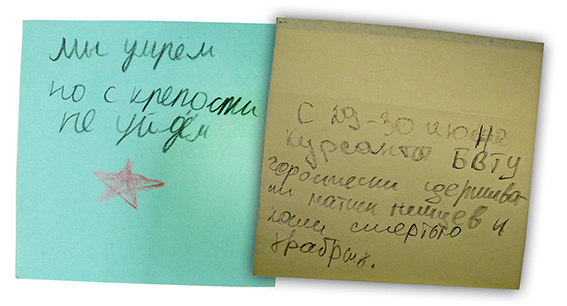 мы умрем
но с крепости
не уйдём
С 29-30 июня
Курсанты БВТУ
героически удержива
ли натиск немцев и
пали смертью
храбрых.